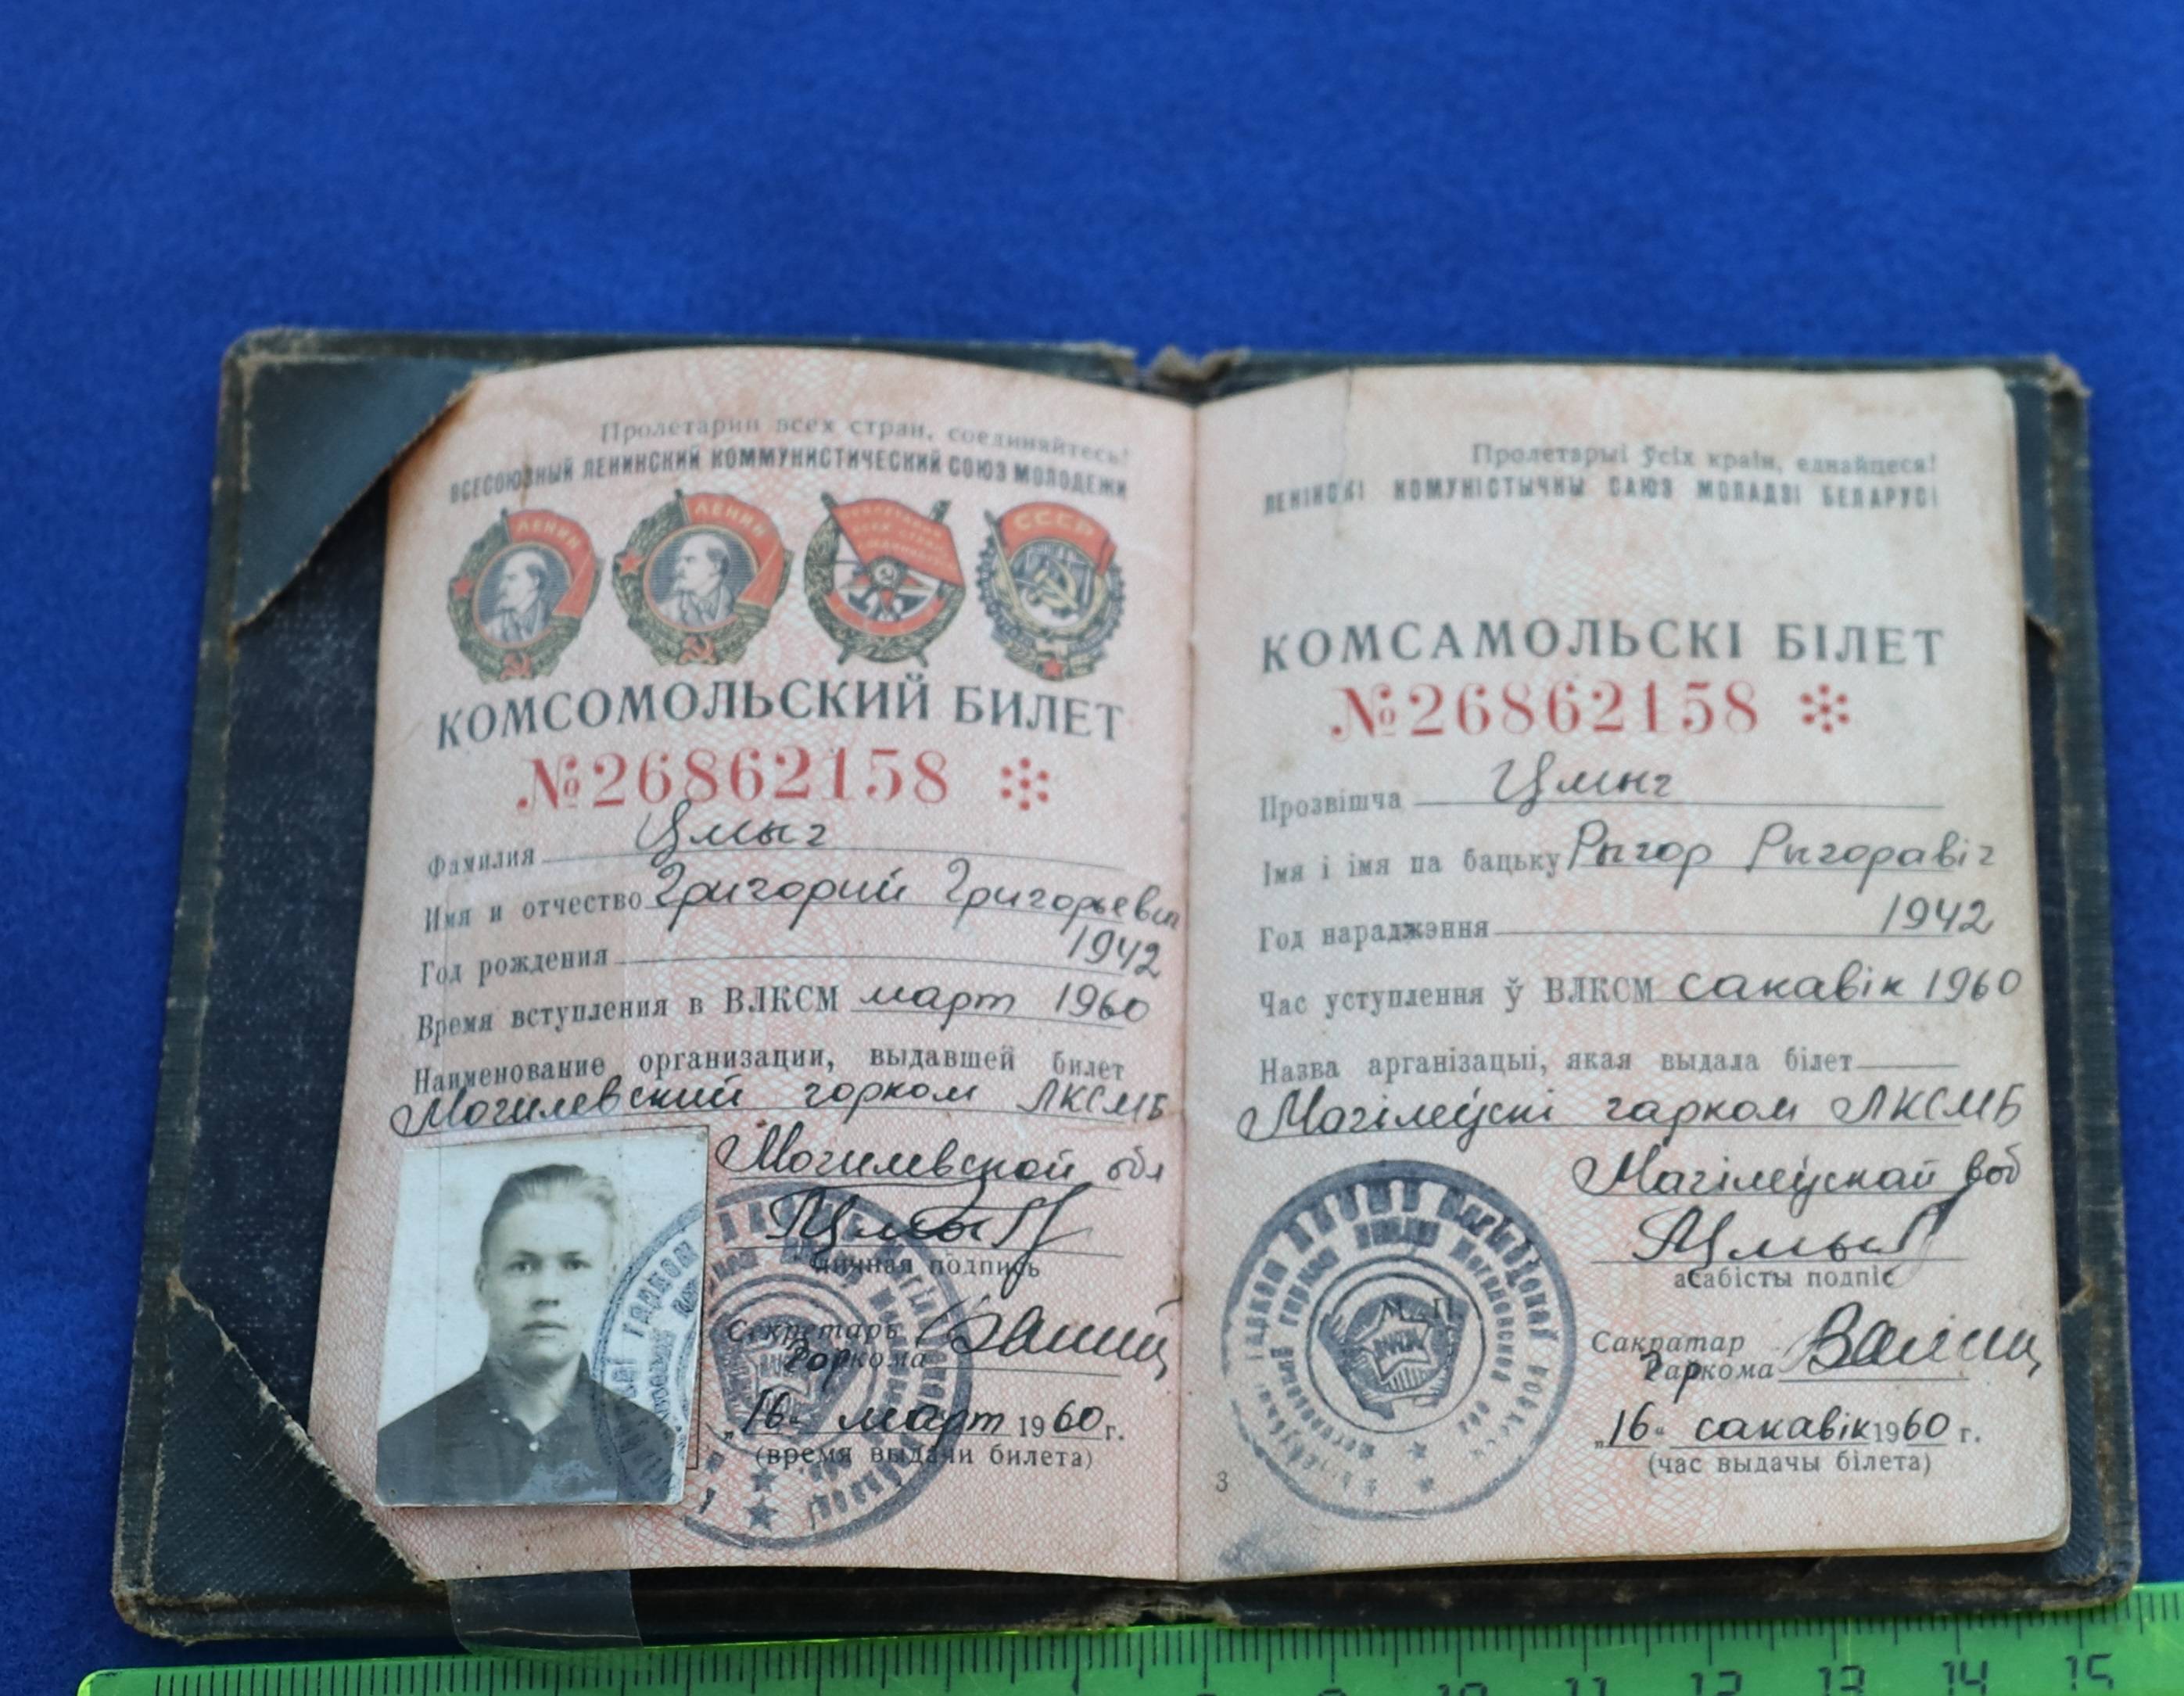 Пролетарии всех стран, соединяйтесь!
ВСЕСОЮЗНЫЙ ЛЕНИНСКИЙ КОММУНИСТИЧЕСКИЙ СОЮЗ МОЛОДЕЖИ
ЛЕНИН
ЛЕНИН
СССР
КОМСОМОЛЬСКИЙ БИЛЕТ
№26862158
Фамилия Цмыг
Имя и отчество Григорий Григорьевич
Год рождения 1942
Время вступления в ВЛКСМ март 1960
Наименование организации, выдавшей билет
Могилевский горком ЛКСМБ
Могилевской обл
личная подпись
Секретарь
Горкома
„16“ март 1960 г.
(время выдачи билета)
Пролетарыі ўсіх краін, еднайцеся!
ЛЕНІНСКІ КОМУНІСТЫЧНЫ САЮЗ МОЛАДЗІ БЕЛАРУСІ
КОМСАМОЛЬСКІ БІЛЕТ
№26862158
Прозвішча Цмыг
Імя і імя па бацьку Рыгор Рыгоравіч
Год нараджэння 1942
Час уступлення ў ВЛКСМ сакавік 1960
Назва арганізацыі, якая выдала білет
Магілеўскі гарком ЛКСМБ
Магілеўскай воб
асабісты подпіс
М. П.
Сакратар
Гаркома
„16“ сакавік 1960 г.
(час выдачы білета)
3
11 12 13 14 15